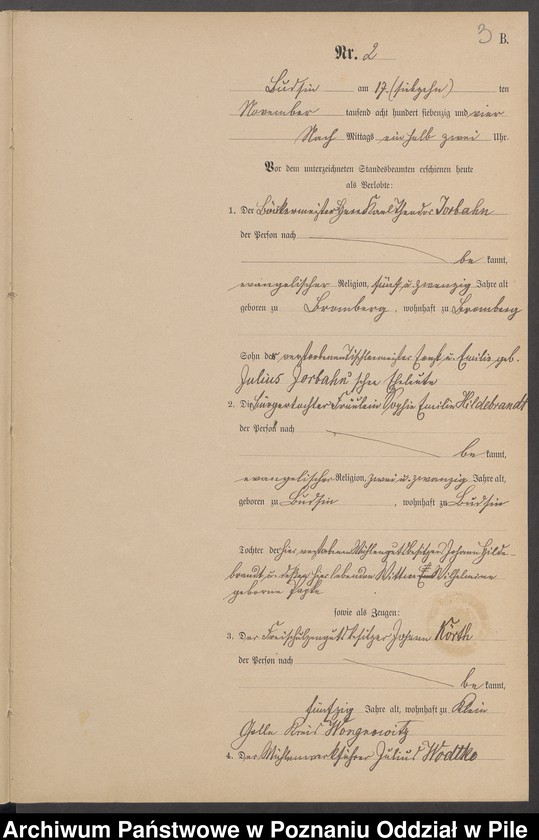 3 B.
Nr. 2
Budsin am 17. (siebzehn) ten
November tausend acht hundert siebenzig und vier
Nach Mittags ein halb zwei Uhr.
Vor dem unterzeichneten Standesbeamten erschienen heute
als Verlobte:
1. Der Bäckermeister Herr Karl Theodor Jorbahn
der Person nach
be kannt,
evangelischer Religion, fünf u. zwanzig Jahre alt
geboren zu Bromberg, wohnhaft zu Bromberg
Sohn der verstorbenen Tischlermeister Ernst u. Emilie geb.
Julius Jorbahn'schen Eheleute
2. Die Bürgertochter Fräulein Sophie Emilie Hildebrandt
der Person nach
be kannt,
evangelischer Religion, zwei u. zwanzig Jahre alt,
geboren zu Budsin, wohnhaft zu Budsin
Tochter der hier verstorbenen Mühlengutsbesitzer Johann Hilde-
brandt u. dessen hier lebenden Wittwe Wilhelmine
geborne
sowie als Zeugen:
3. Der Freischulzengutsbesitzer Johann Körth
der Person nach
be kannt,
fünfzig Jahre alt, wohnhaft zu Klein
Golle Kreis Wongrowitz
4. Der Mühlenwerkführer Julius Wodtke
Archiwum Państwowe w Poznaniu Oddział w Pile